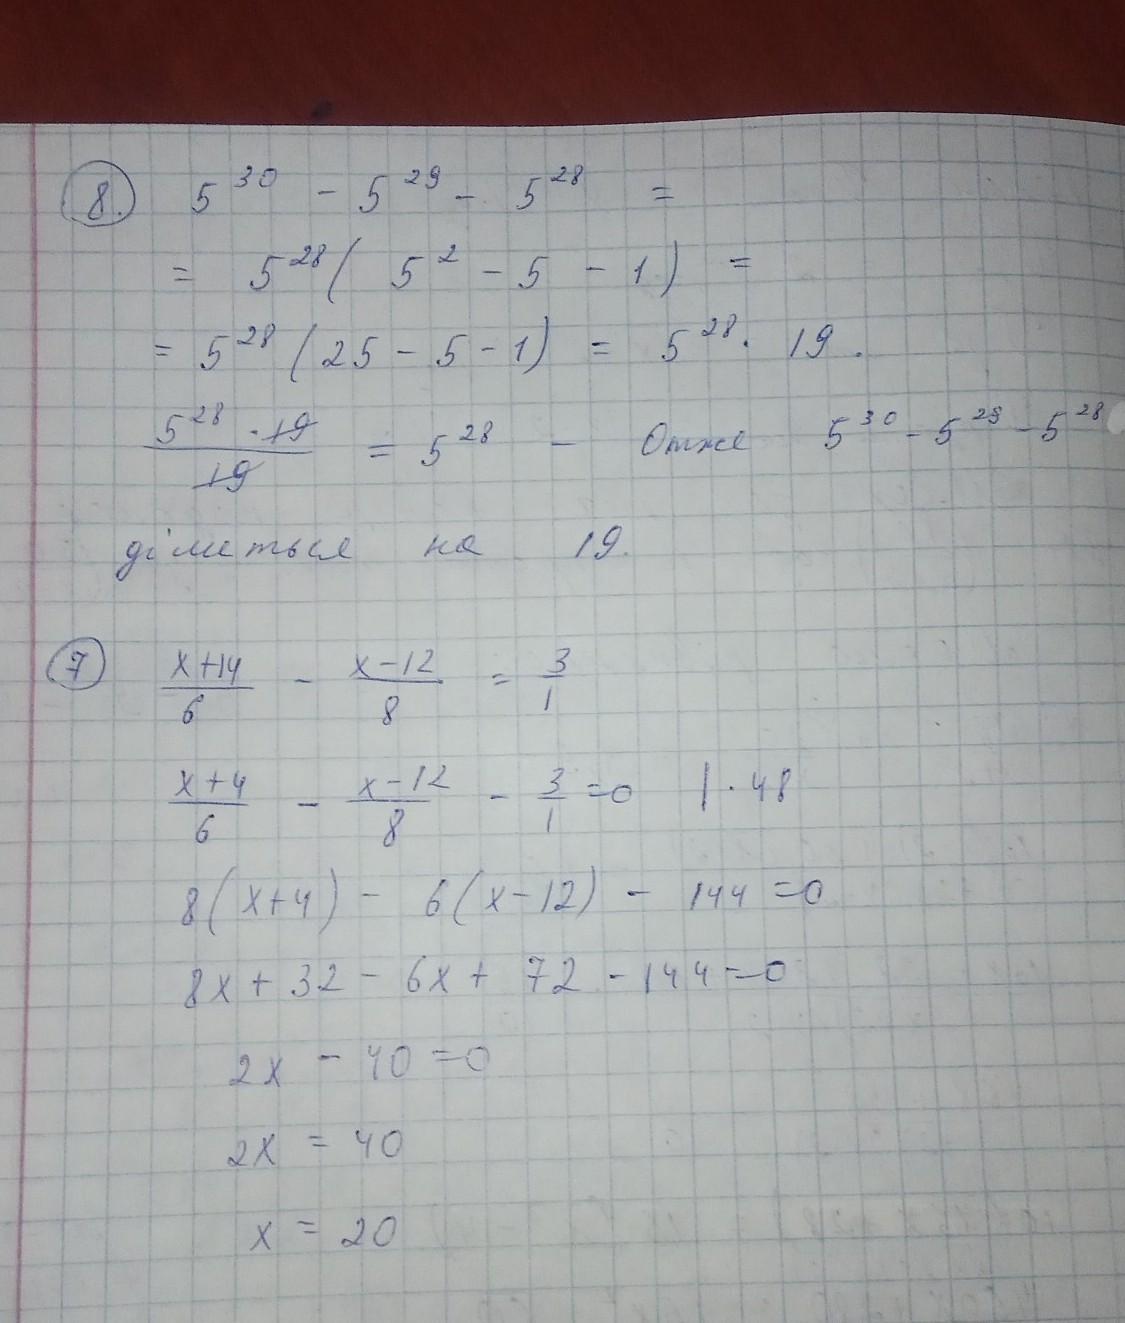 8. 5^30 - 5^29 - 5^28 =
= 5^28 ( 5^2 - 5 - 1 ) =
= 5^28 (25 - 5 - 1) = 5^28 · 19.
5^28 · 19 / 19 = 5^28 - Отже 5^30 - 5^29 - 5^28
ділиться на 19.
7 x+14/6 - x-12/8 = 3/1
x+4/6 - x-12/8 - 3/1 = 0 | · 48
8(x+4) - 6(x-12) - 144 = 0
8x + 32 - 6x + 72 - 144 = 0
2x - 40 = 0
2x = 40
x = 20